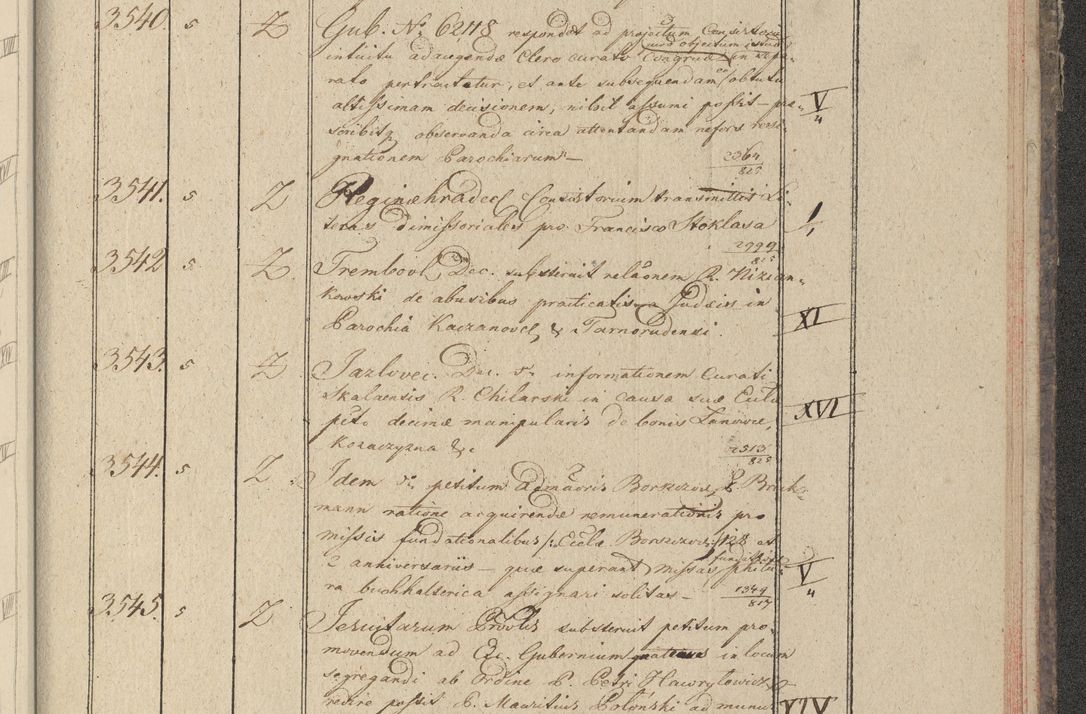 3540. 5 Z Gub. No 62118 respondet ad projectum Consistorii
quod objectum istud
intuitu adaugendæ Clero curato Congruæ in
rato pertractatur, et ante subsequendam obtutu
altissimam decisionem, nihil assumi possit — præ- V/4
scribitq observanda circa attentandam nefors resi-
gnationem Parochiarum — 2364/825
3541. 5 Z Reginæhradec Consistorium transmittit Li-
teras dimissoriales pro Francisco Stoklasa 1/1
2999/825
3542 5 Z Trembovl. Dec. substernit relaõnem R. Nizian-
kowski de abusibus practicatis a Judæis in
Parochia Kaczanovc, & Tarnorudensi. XI
3543. 5 Z Jazlovec. Dec. informationem Curati
Skalaensis R. Chilarski in causa suæ Eccla
pcto decimæ manipularis de bonis Lanovce, XVI
Kozaczyzna &c. 2513/825
3544. 5 Z Idem petitum Borszczov, P. Brech-
mann ratione acquirendæ remunerationis pro
missis fundationalibus /: Eccle. Borszczov: 128 et
fundatis
2 anniversariis — quæ superant missas, V/4
ra buchhalterica assignari solitas — 1349/817
3545. 5 Z Jesuitarum Provlis substernit petitum pro-
movendum ad Exc. Gubernium in locum
segregandi ab Ordine P. Petri Hawryłowicz
redire possit P. Mauritius Połoński ad munus XIV